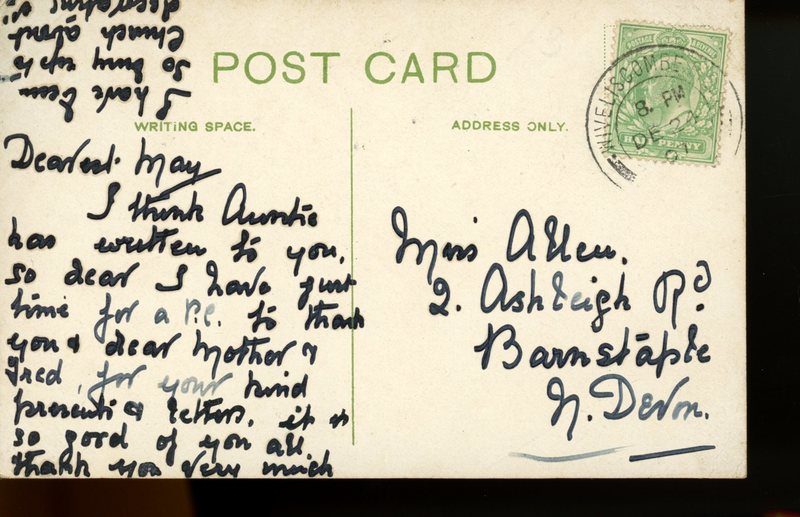 POST CARD
WRITING SPACE.
ADDRESS ONLY.
Dearest May
I think Auntie
has written to you,
so dear I have just
time for a P.C. to thank
you & dear Mother &
Fred, for your kind
presents & letters, it is
so good of you all,
thank you very much
I have been
so busy up to
Church about
WIVELISCOMBE
8. PM
DE 22
07
HALFPENNY
Miss Allen.
2. Ashleigh Rd.
Barnstaple
N. Devon.